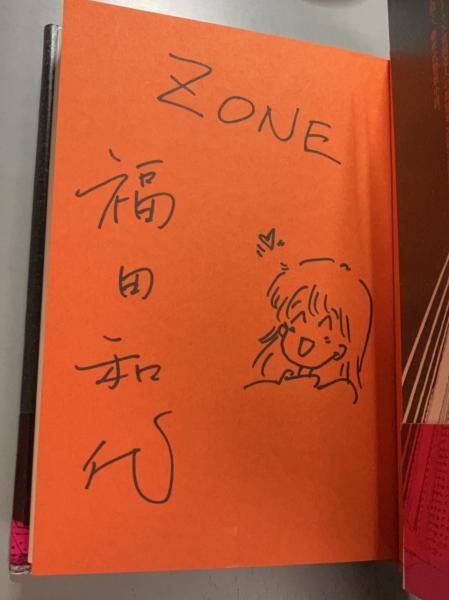 ZONE
福田和代